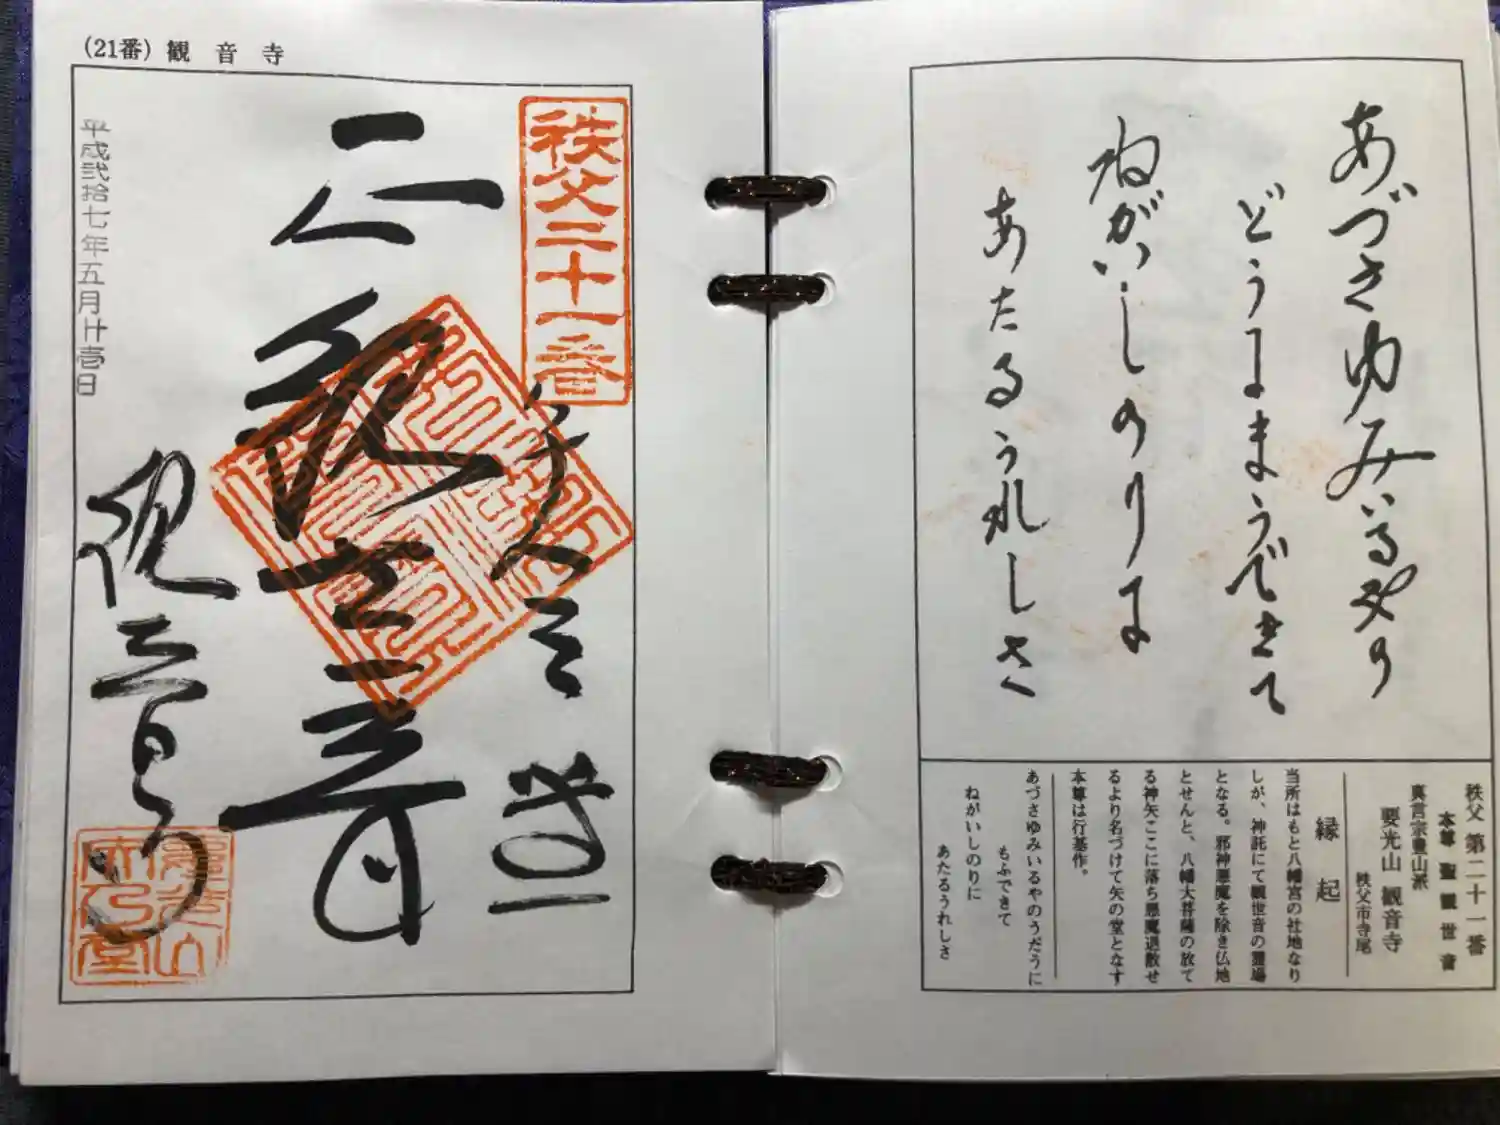 あづさゆみいる矢の
どうにまうできて
ねがいしのりに
あたるうれしさ
秩父 第二十一番
本尊 聖観世音
真言宗豊山派
要光山 観音寺
秩父市寺尾
縁起
当所はもと八幡宮の社地なり
しが、神託にて観世音の霊場
となる。邪神悪魔を除き仏地
とせんと、八幡大菩薩の放て
る神矢ここに落ち悪魔退散せ
るより名づけて矢の堂となす
本尊は行基作。
あづさゆみいるやのうだうに
もふできて
ねがいしのりに
あたるうれしさ
(21番) 観音寺
秩父二十一番
観音寺
平成弐拾七年五月廿壱日